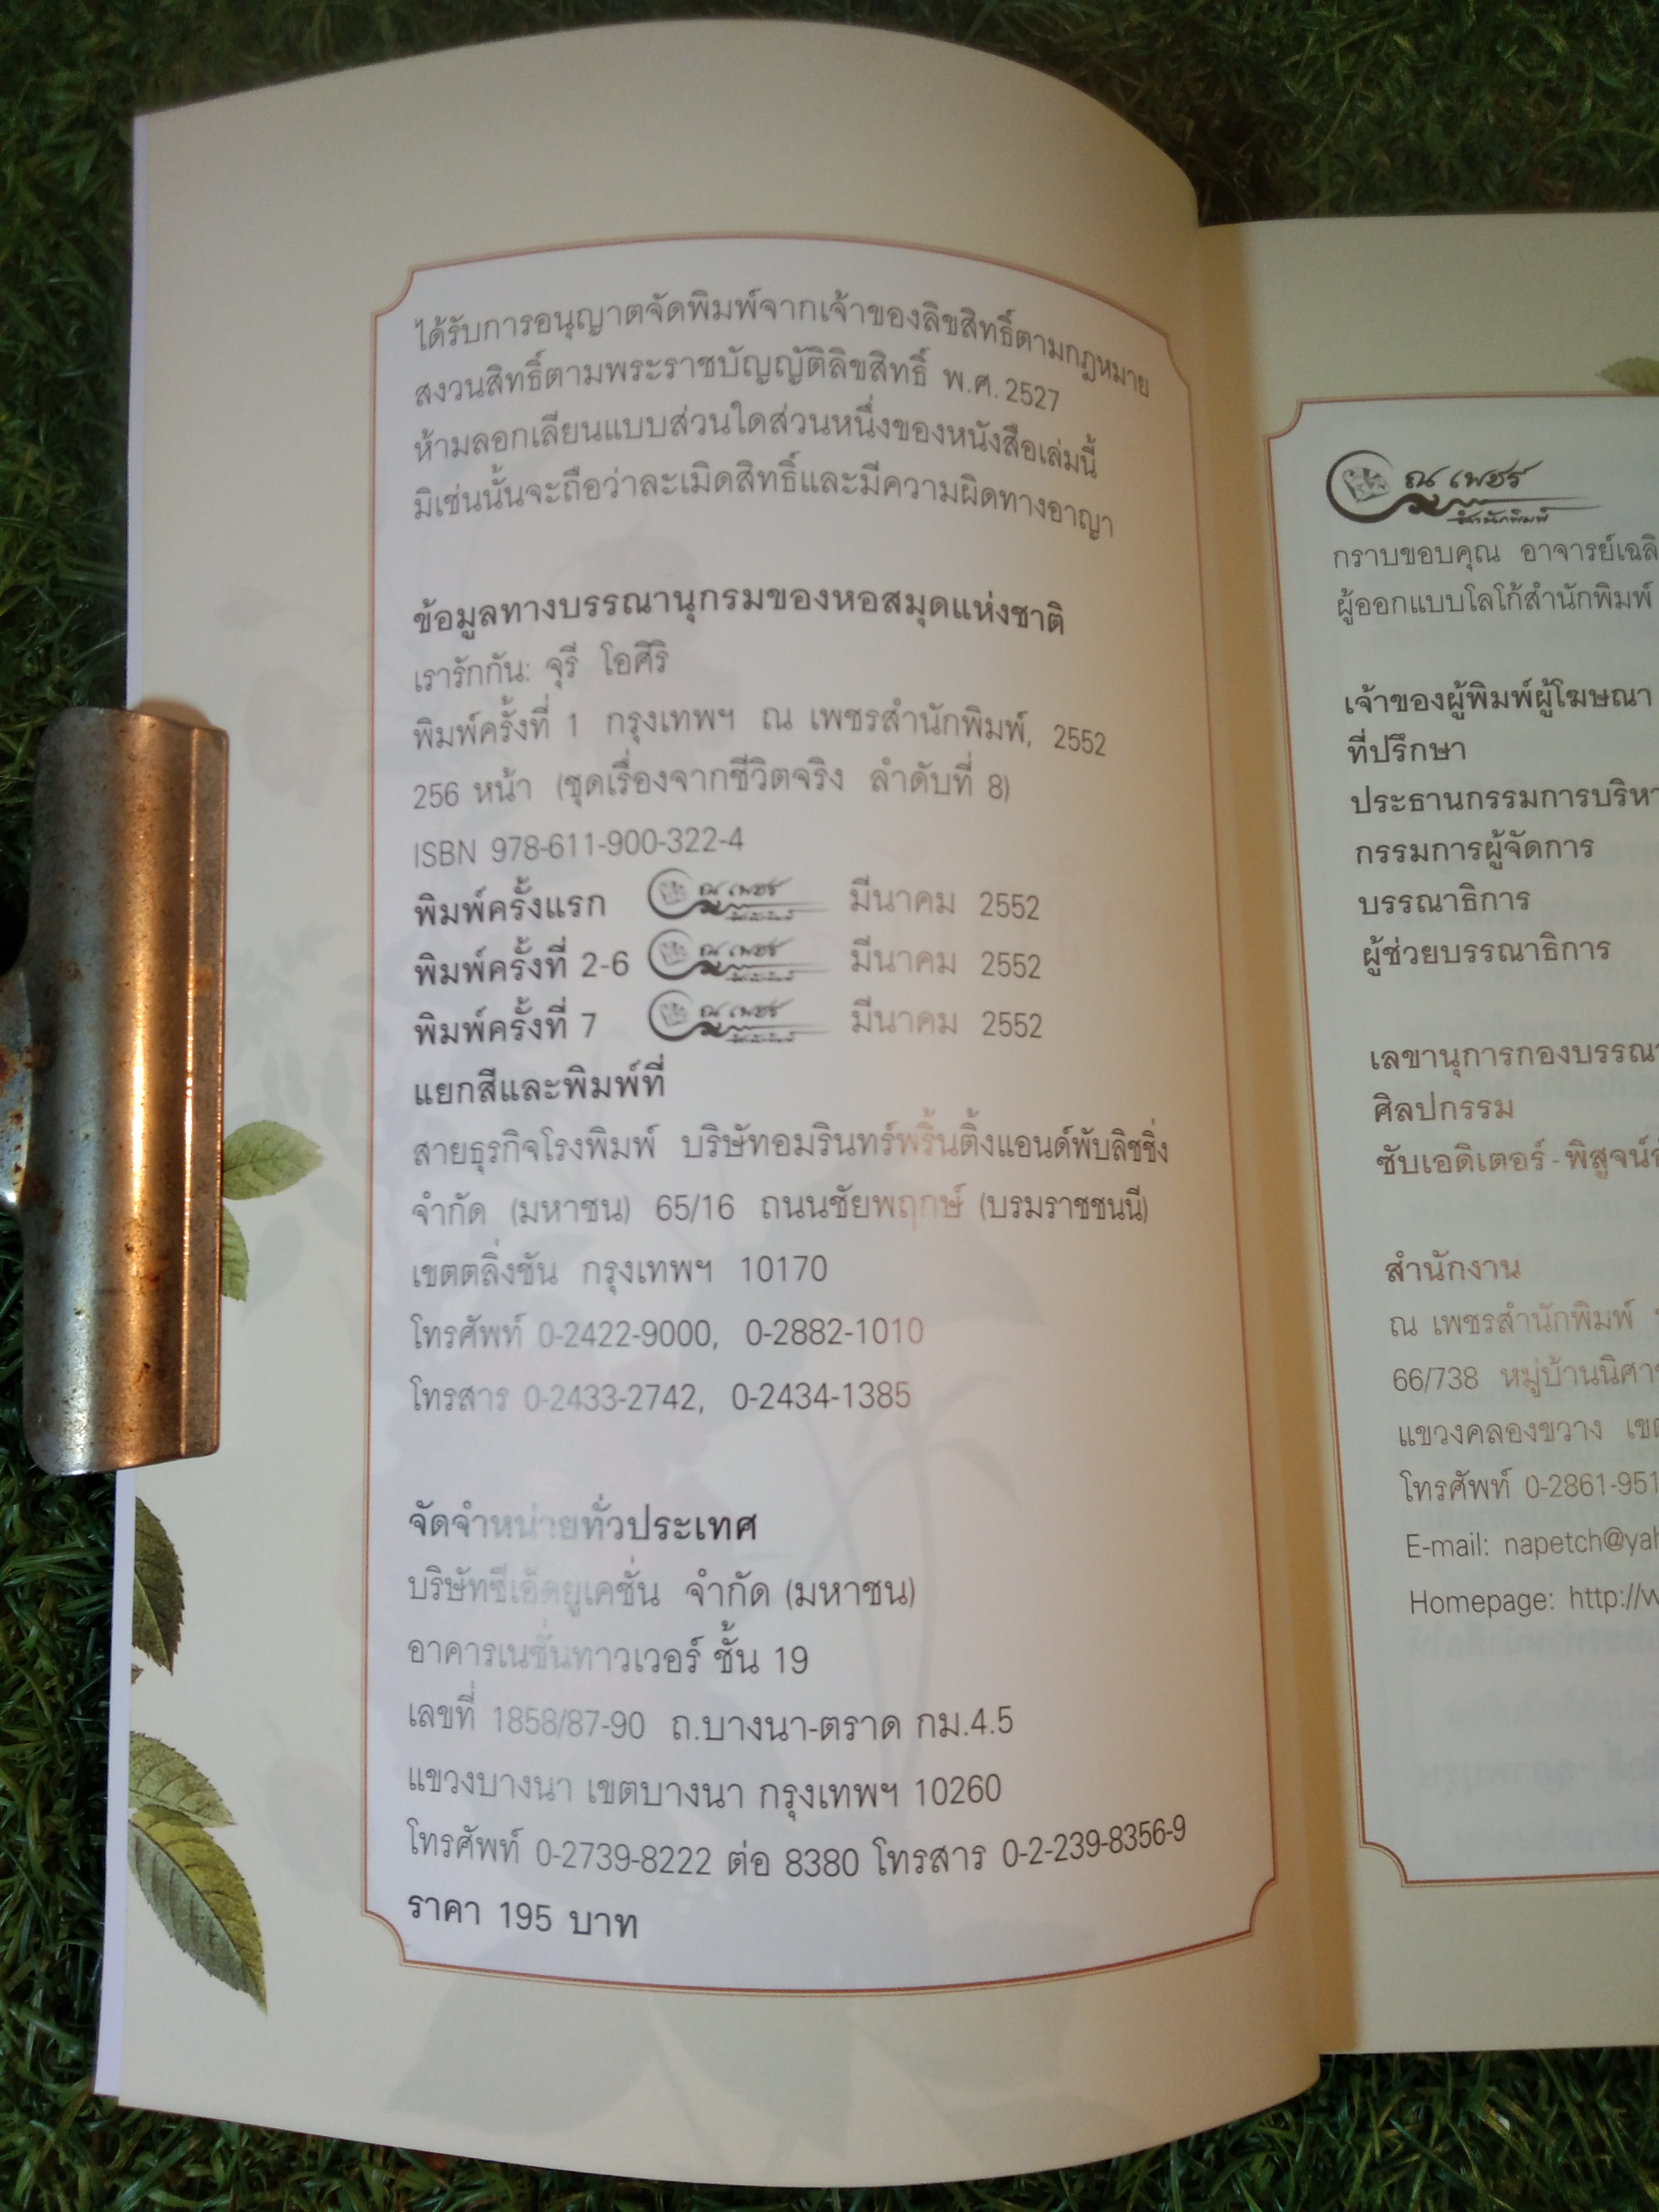 ได้รับการอนุญาตจัดพิมพ์จากเจ้าของลิขสิทธิ์ตามกฎหมาย
สงวนสิทธิ์ตามพระราชบัญญัติลิขสิทธิ์ พ.ศ. 2527
ห้ามลอกเลียนแบบส่วนใดส่วนหนึ่งของหนังสือเล่มนี้
มิเช่นนั้นจะถือว่าละเมิดสิทธิ์และมีความผิดทางอาญา
ข้อมูลทางบรรณานุกรมของหอสมุดแห่งชาติ
เรารักกัน: จุรี โอศิริ
พิมพ์ครั้งที่ 1 กรุงเทพฯ ณ เพชรสำนักพิมพ์, 2552
256 หน้า (ชุดเรื่องจากชีวิตจริง ลำดับที่ 8)
ISBN 978-611-900-322-4
พิมพ์ครั้งแรก ณ เพชร สำนักพิมพ์ มีนาคม 2552
พิมพ์ครั้งที่ 2-6 ณ เพชร สำนักพิมพ์ มีนาคม 2552
พิมพ์ครั้งที่ 7 ณ เพชร สำนักพิมพ์ มีนาคม 2552
แยกสีและพิมพ์ที่
สายธุรกิจโรงพิมพ์ บริษัทอมรินทร์พริ้นติ้งแอนด์พับลิชชิ่ง
จำกัด (มหาชน) 65/16 ถนนชัยพฤกษ์ (บรมราชชนนี)
เขตตลิ่งชัน กรุงเทพฯ 10170
โทรศัพท์ 0-2422-9000, 0-2882-1010
โทรสาร 0-2433-2742, 0-2434-1385
จัดจำหน่ายทั่วประเทศ
บริษัทซีเอ็ดยูเคชั่น จำกัด (มหาชน)
อาคารเนชั่นทาวเวอร์ ชั้น 19
เลขที่ 1858/87-90 ถ.บางนา-ตราด กม.4.5
แขวงบางนา เขตบางนา กรุงเทพฯ 10260
โทรศัพท์ 0-2739-8222 ต่อ 8380 โทรสาร 0-2-239-8356-9
ราคา 195 บาท
ณ เพชร
สำนักพิมพ์
กราบขอบคุณ อาจารย์เฉลิ
ผู้ออกแบบโลโก้สำนักพิมพ์
เจ้าของผู้พิมพ์ผู้โฆษณา
ที่ปรึกษา
ประธานกรรมการบริหา
กรรมการผู้จัดการ
บรรณาธิการ
ผู้ช่วยบรรณาธิการ
เลขานุการกองบรรณา
ศิลปกรรม
ซับเอดิเตอร์-พิสูจน์อ
สำนักงาน
ณ เพชรสำนักพิมพ์
66/738 หมู่บ้านนิศา
แขวงคลองขวาง เขต
โทรศัพท์ 0-2861-951
E-mail: napetch@yah
Homepage: http://w